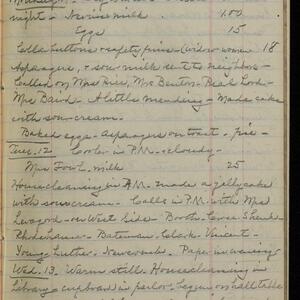 night - Nervine milk 1.00
Eggs 15
Collar buttons & safety pins - 18
Asparagus, & sour-milk sent to neighbors -
Called on Mrs Rice, Mrs Benton -
Mrs Baird - A little mending - Made cake
with sour-cream.
Baked eggs - asparagus on toast - pie -
Tues. 12 Cooler in P.M. - cloudy -
Mrs Foot, milk 25
Housecleaning in A.M. made a jelly cake
with sour cream - Calls in P.M. with Mrs
on West side - Booth -
Bateman, Clark - Vincent -
Young, Luther - Newcomb. Paper
Wed. 13. Warm still. Housecleaning in
library & cupboard in parlor,